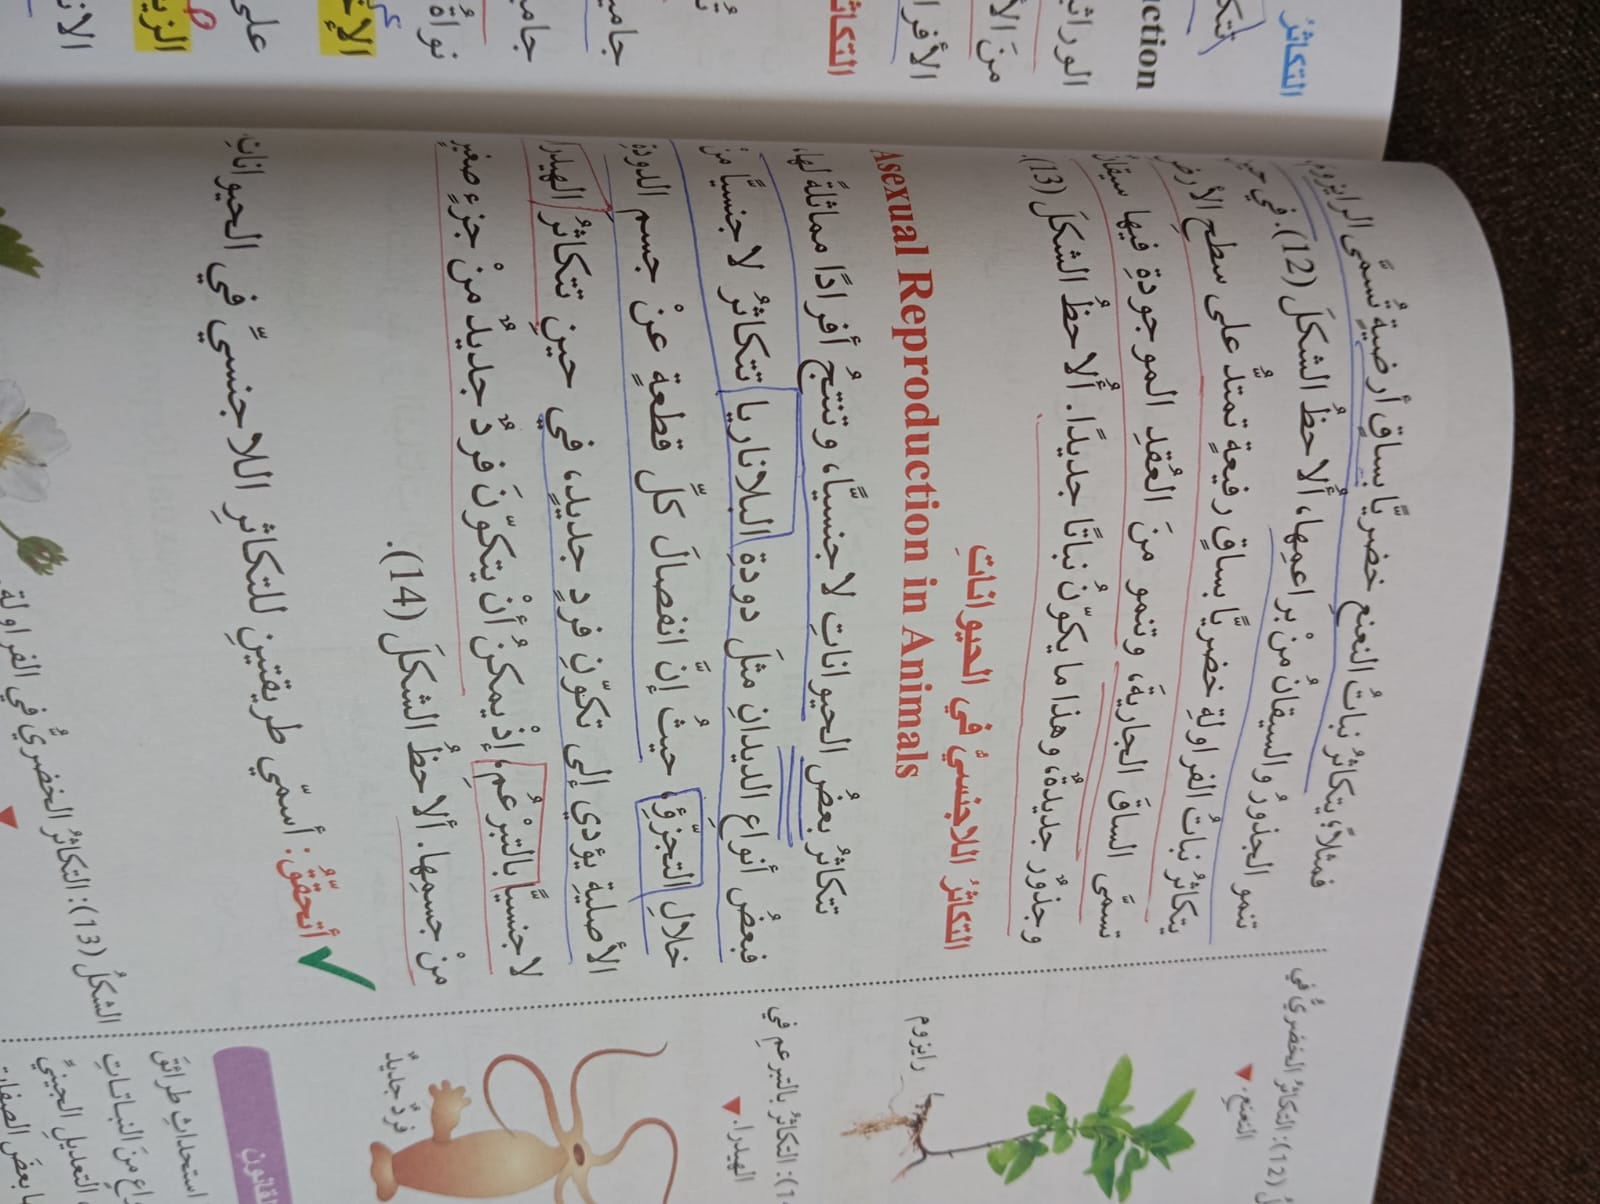 فمثلًا، يتكاثرُ نباتُ النعنعِ خضريًّا بساقٍ أرضيةٍ تُسمَّى الرايزوم،
تنمو الجذورُ والسيقانُ منْ براعمِها، أُلاحظُ الشكلَ (12). في حين
يتكاثرُ نباتُ الفراولةِ خضريًّا بساقٍ رفيعةٍ تمتدُّ على سطحِ الأرضِ
تسمَّى الساقَ الجاريةَ، وتنمو منَ العُقدِ الموجودةِ فيها سيقانٌ
وجذورٌ جديدةٌ، وهذا ما يكوّنُ نباتًا جديدًا. أُلاحظُ الشكلَ (13).
التكاثرُ اللاجنسيُّ في الحيواناتِ
Asexual Reproduction in Animals
تتكاثرُ بعضُ الحيواناتِ لاجنسيًّا، وتنتجُ أفرادًا مماثلةً لها،
فبعضُ أنواعِ الديدانِ مثلَ دودةِ البلاناريا تتكاثرُ لاجنسيًّا منْ
خلالِ التجزُّؤِ، حيثُ إنَّ انفصالَ كلِّ قطعةٍ عنْ جسمِ الدودةِ
الأصليةِ يؤدي إلى تكوّنِ فردٍ جديدٍ، في حينِ تتكاثرُ الهيدرا
لاجنسيًّا بالتبرْعُمِ، إذْ يمكنُ أنْ يتكوّنَ فردٌ جديدٌ منْ جزءٍ صغيرٍ
منْ جسمِها. ألاحظُ الشكلَ (14).
أتحقّقُ: أسمّي طريقتينِ للتكاثرِ اللاجنسيِّ في الحيواناتِ.
الشكلُ (13): التكاثرُ الخضريُّ في الفراولةِ.
(12): التكاثرُ الخضريُّ في
النعنعِ.
رايزوم
التكاثرُ بالتبرعمِ في
الهيدرا.
فردٌ جديدٌ
القانونِ
استحداثِ طرائقَ
منَ النباتاتِ
التعديلِ الجينيِّ
بعضَ الصفاتِ
التكاثرُ
ction
منَ الأ
التكاثر
نواةُ
على